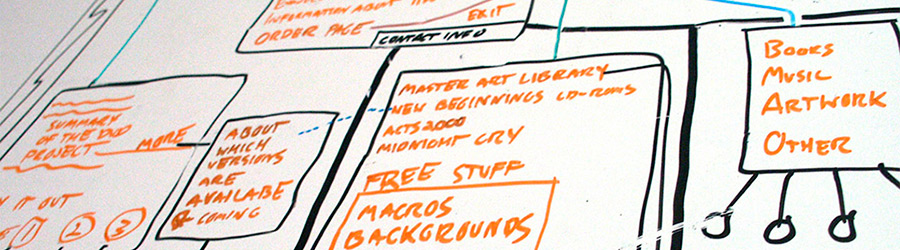 INFORMATION ABOUT
EXIT
ORDER PAGE
CONTACT INFO
SUMMARY
OF THE DVD
PROJECT
MORE
IT OUT
1 2 3
ABOUT
WHICH
VERSIONS
ARE
AVAILABE
COMING
MASTER ART LIBRARY
NEW BEGINNINGS CD-ROMS
ACTS 2000
MIDNIGHT CRY
FREE STUFF
MACROS
BACKGROUNDS
BOOKS
MUSIC
ARTWORK
OTHER